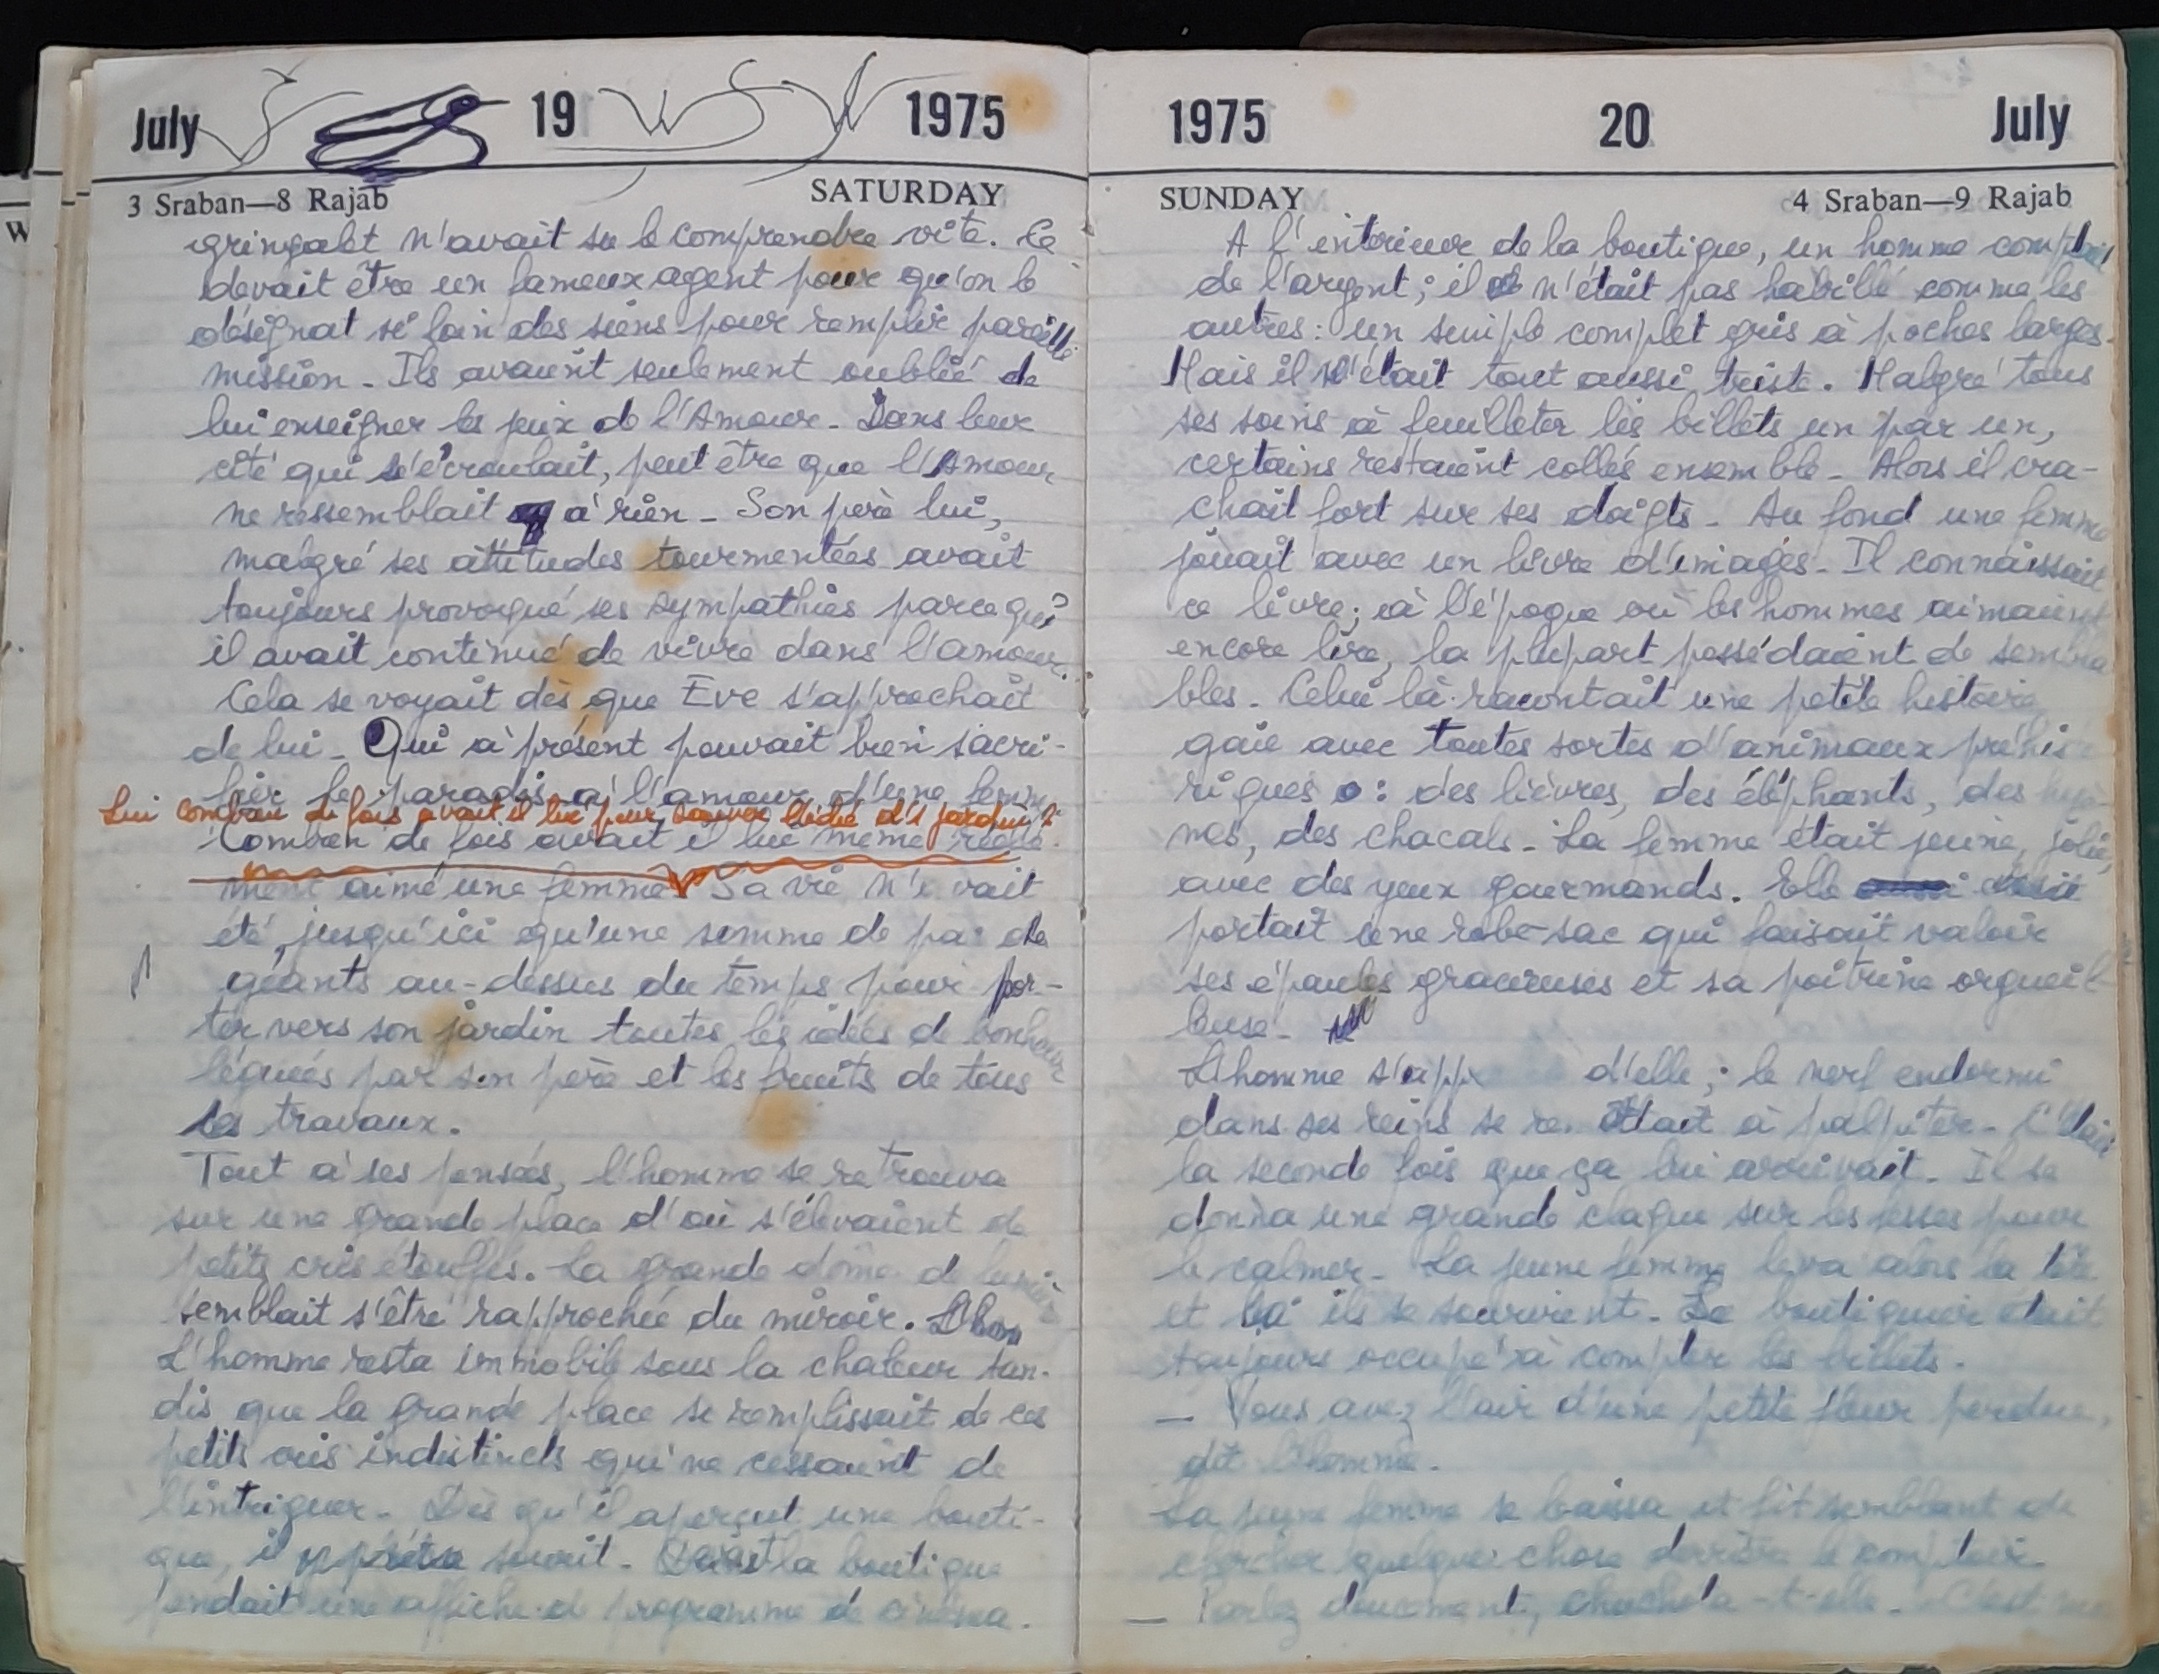 July 19 1975
3 Sraban—8 Rajab SATURDAY
gringalet n'avait su le comprendre vite. Ce
devait être un fameux agent pour qu'on le
désignat si loin des siens pour remplir pareille
mission - Ils avaient seulement oublié de
lui enseigner les jeux de l'Amour - Dans leur
cité qui s'écroulait, peut être que l'Amour
ne ressemblait à rien - Son père lui,
malgré ses attitudes tourmentées avait
toujours provoqué ses sympathies parce qu'
il avait continué de vivre dans l'amour.
Cela se voyait dès que Eve s'approchait
de lui - Qui à présent pouvait bien sacri-
fier le paradis à l'amour d'une femme
Lui combien de fois avait il tué pour sauver l'idée d'1 jardin?
Combien de fois avait il lui même réelle-
ment aimé une femme Sa vie n'avait
été, jusqu'ici qu'une somme de pas de
géants au-dessus du temps pour por-
ter vers son jardin toutes les idées de bonheur
léguées par son père et les fruits de tous
les travaux.
Tout à ses pensées, l'homme se retrouva
sur une grande place d'où s'élevaient de
petits cris étouffés. La grande dôme de lumière
semblait s'être rapprochée du miroir. L'hom
L'homme resta immobile sous la chaleur tan-
dis que la grande place se remplissait de ces
petits cris indistincts qui ne cessaient de
l'intriguer - Dès qu'il aperçut une bouti-
que, il sourit - Devant la boutique
pendait une affiche de programme de cinéma.
1975 20 July
SUNDAY 4 Sraban—9 Rajab
A l'intérieur de la boutique, un homme comptait
de l'argent; il n'était pas habillé comme les
autres: un simple complet gris à poches larges.
Mais il était tout aussi triste. Malgré tous
ses soins à feuilleter les billets un par un,
certains restaient collés ensemble - Alors il cra-
chait fort sur ses doigts - Au fond une femme
jouait avec un livre d'images - Il connaissait
ce livre; à l'époque où les hommes aimaient
encore lire, la plupart possédaient de sembla
bles. Celui là racontait une petite histoire
gaie avec toutes sortes d'animaux préhis
riques: des lièvres, des éléphants, des hyè-
nes, des chacals - La femme était jeune, jolie,
avec des yeux gourmands. Elle
portait une robe-sac qui faisait valoir
ses épaules gracieuses et sa poitrine orgueil-
leuse -
L'homme s'app d'elle; le nerf endormi
dans ses reins se re ettait à palpiter - C'était
la seconde fois que ça lui arrivait. Il se
donna une grande claque sur les fesses pour
le calmer - La jeune femme leva alors la tête
et là ils se sourirent - Le boutiquier était
toujours occupé à compter les billets.
— Vous avez l'air d'une petite fleur perdue,
dit l'homme.
La jeune femme se baissa et fit semblant de
chercher quelque chose derrière le comptoir -
— Parlez doucement, chuchota-t-elle. C'est